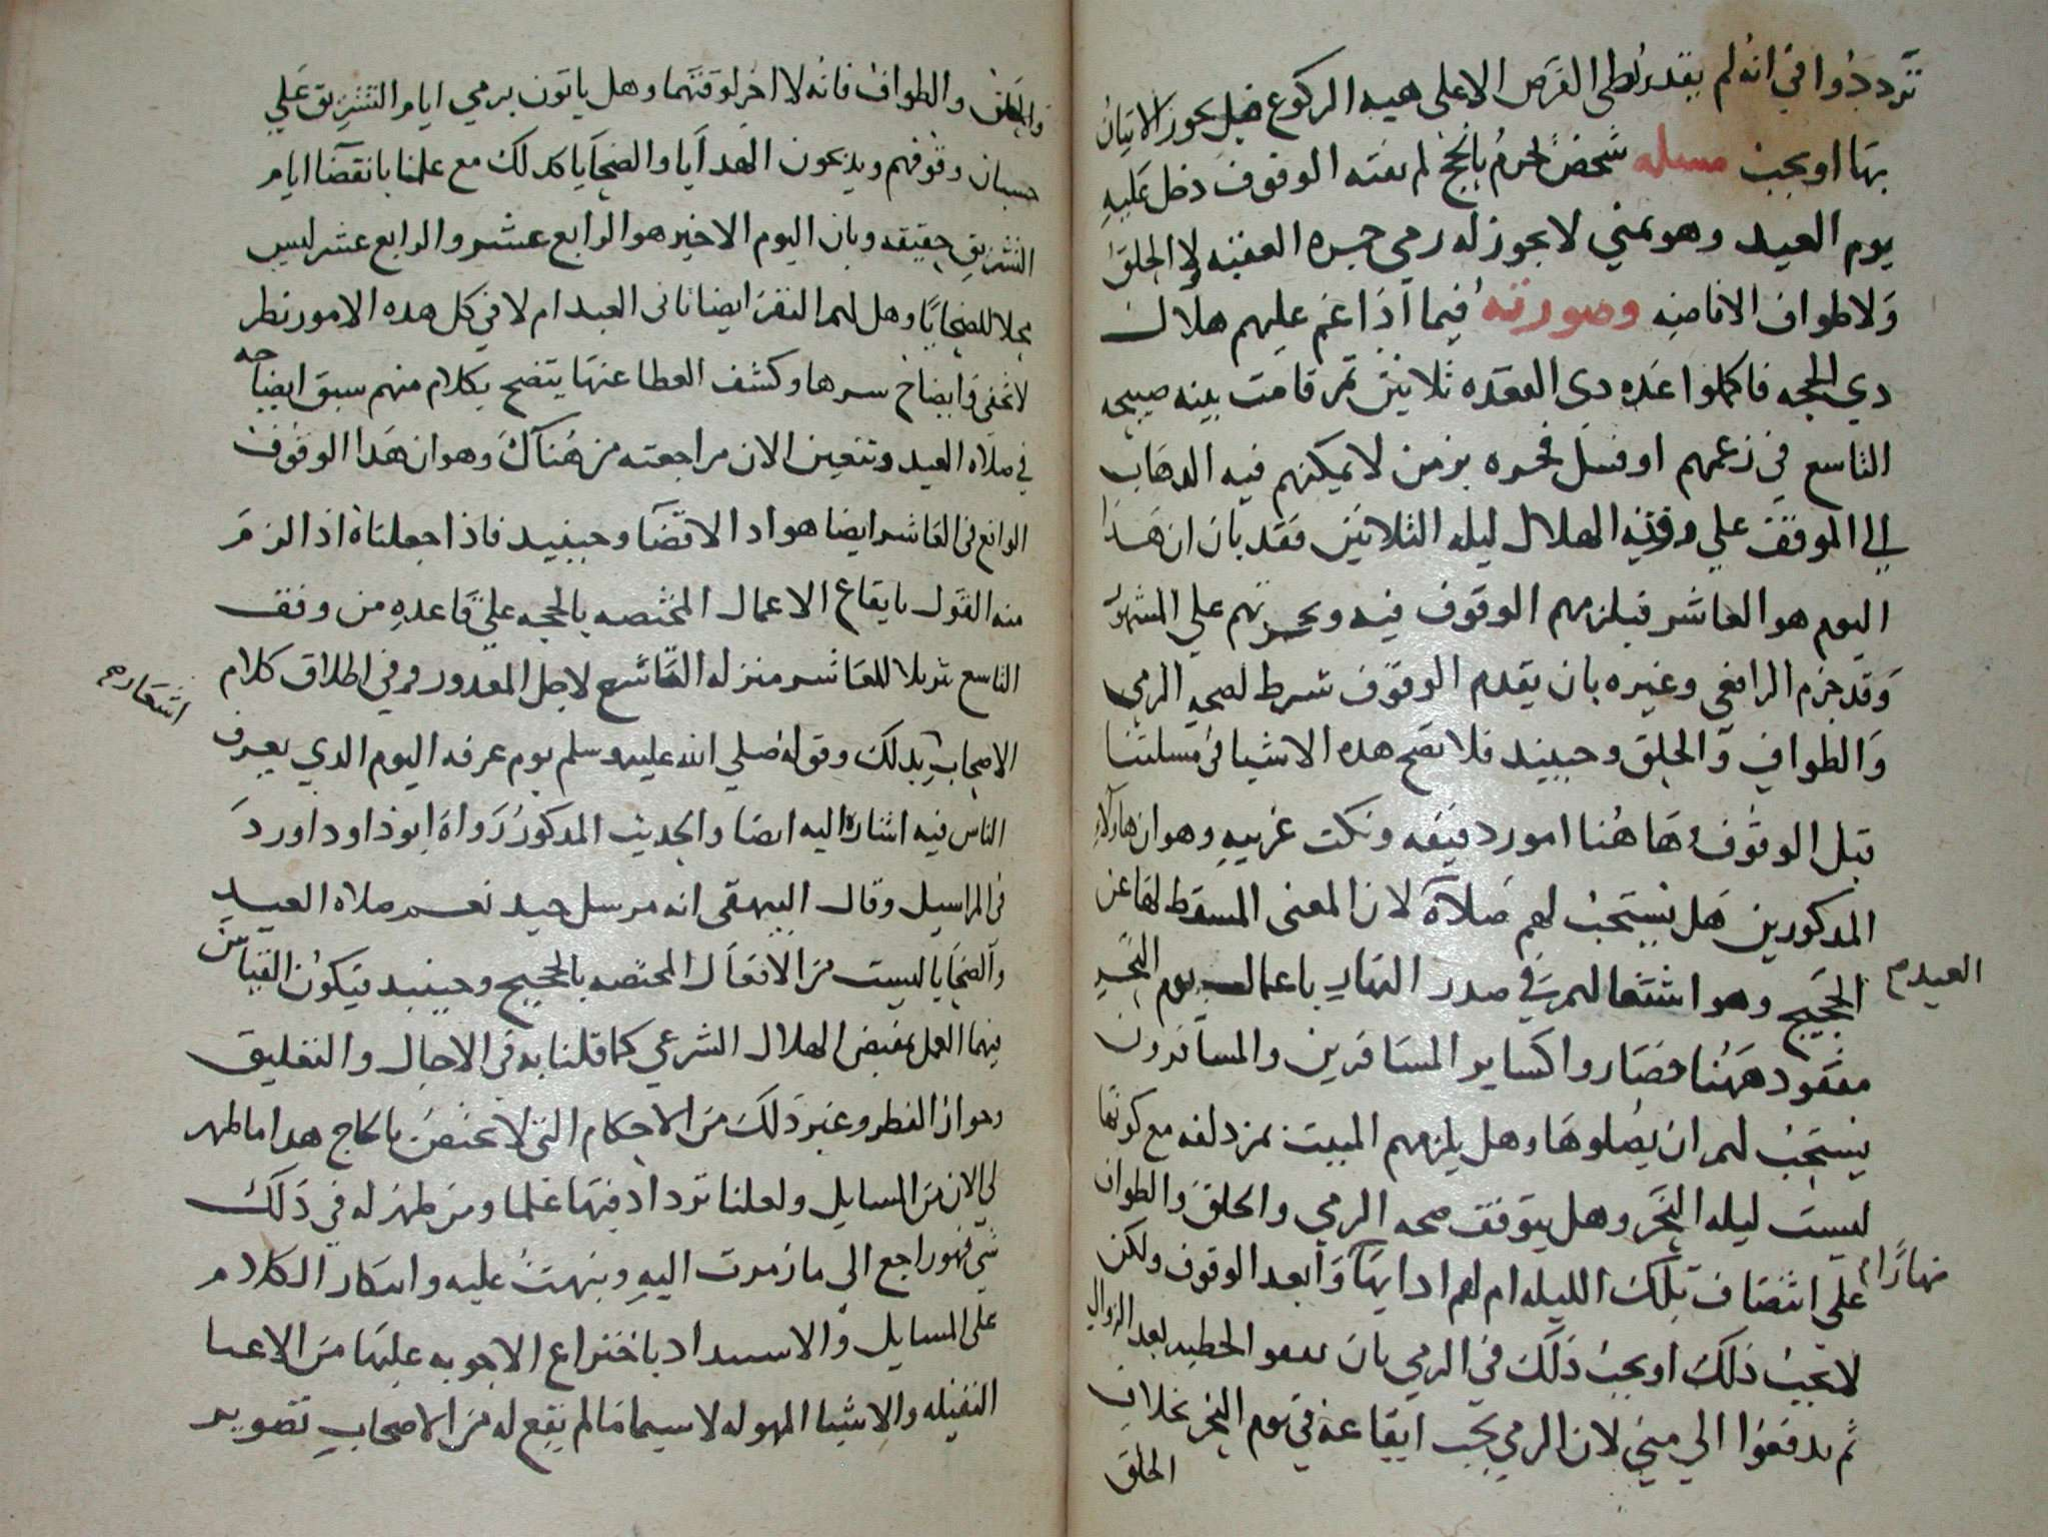 ترددوا في انه لم يقدر نطى الفرض الا على هيه الركوع فهل يجوز الاتيان
بها او يجب مسله شخص احرم بالحج لم يفته الوقوف دخل عليه
يوم العيد وهو بمني لا يجوز له رمي جمره العقبه ولا الحلق
ولا طواف الافاضه وصورته فيما اذا غم عليهم هلال
دي الحجه فاكملوا عده دى القعده ثلاثين ثم قامت بينه صبيحه
التاسع في زعمهم او قبل فجره بزمن لا يمكنهم فيه الدهاب
الي الموقف علي روية الهلال ليله الثلاثين فقد بان ان هذا
اليوم هو العاشر فيلزمهم الوقوف فيه ويجزيهم علي المشهور
وقد جزم الرافعي وغيره بان يقدم الوقوف شرط لصحه الرمي
والطواف والحلق وحينيد فلا تصح هده الاشيا في مسلتنا
قبل الوقوف وهاهنا امور دقيقه ونكت غريبه وهو ان هاولاء
المدكورين هل يستحب لهم صلاة لان المعنى المسقط لها عن
العيد
الحجيج وهو اشتغالهم في صدر النهار باعمال يوم النحر
مفقود ههنا فصاروا كساير المسافرين والمسافرون
يستحب لهم ان يصلوها وهل يلزمهم المبيت بمزدلفه مع كونها
ليست ليله النحر وهل يتوقف صحه الرمي والحلق والطواف
علي انتصاف تلك الليله ام لهم ادايها وابعد الوقوف ولكن
نهارا
لا يجب ذلك او يجب ذلك في الرمي بان يدفعوا الحطيه بعد الزوال
ثم يدفعوا الي مني لان الرمي يجب ايقاعه في يوم النحر بخلاف
الحلق
والحلق والطواف فانه لا اخر لوقتهما وهل ياتون برمي ايام التشريق علي
حسبان وقوفهم ويذبحون الهدايا والضحايا كدلك مع علمنا بانقضا ايام
التشريق حقيقه وبان اليوم الاخير هو الرابع عشر والرابع عشر ليس
محلا للضحايا وهل لهم النفر ايضا ثاني العيد ام لا في كل هده الامور نظر
لا يخفي وايضاح سرها وكشف الغطا عنها يتضح بكلام منهم سبق ايضاحه
في صلاه العيد وتتعين الان مراجعته من هناك وهو ان هدا الوقوف
الواقع في العاشر ايضا هو ادا لا قضا وحينيد فاذا جعلناه ادا لزم
منه القول بايقاع الاعمال المختصه بالحجه علي قاعده من وقف
التاسع تنزيلا للعاشر منزله التاسع لاجل المعدور وفي اطلاق كلام
اشعار
الاصحاب بدلك وقوله صلي الله عليه وسلم يوم عرفه اليوم الدي يعرف
الناس فيه اشاره اليه ايضا والحديث المدكور رواه ابوداود اورد
في المراسيل وقال البيهقي انه مرسل جيد نعم صلاه العيد
والضحايا ليست من الافعال المختصه بالحجيج وحينيد فيكون القياس
فيهما العمل بمقتضى الهلال الشرعي كما قلنا به في الاجال والتعليق
وجواز الفطر وغير ذلك من الاحكام التي لا تختص بالحاج هدا ما ظهر
لي الان من المسايل ولعلنا نزداد فيها علما ومن ظهر له في ذلك
شي فهو راجع الي ما رمزت اليه ونبهت عليه وابتكار الكلام
على المسايل والاستبداد باختراع الاجوبه عليها من الاعبا
الثقيله والاشيا المهوله لا سيما ما لم يقع له من الاصحاب تصوير